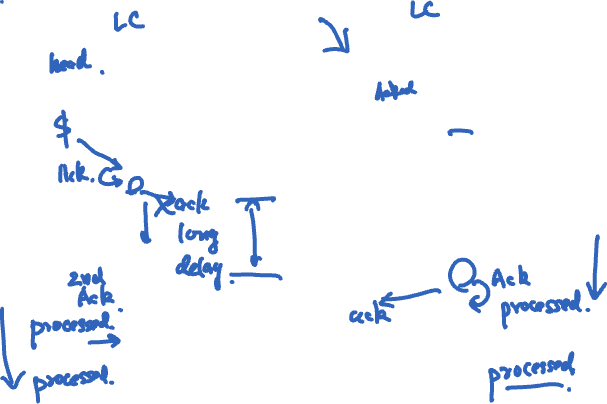 LC
LC
head.
Acked
$
Ack.
ack
long
delay.
2nd
Ack.
processed.
processed.
Ack
processed.
ack
processed